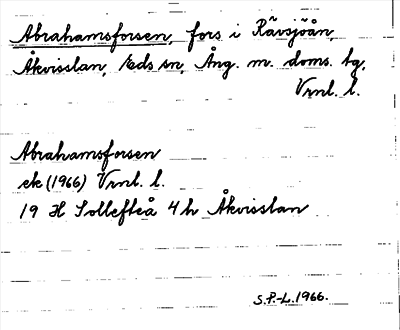 Abrahamsforsen, fors i Rävsjöån,
Åkvisslan, Eds sn, Ång. m. doms. tg.
Vrnl. l.
Abrahamsforsen
ek (1966) Vrnl. l.
19 H Sollefteå 4 h Åkvisslan
S.P.-L. 1966.